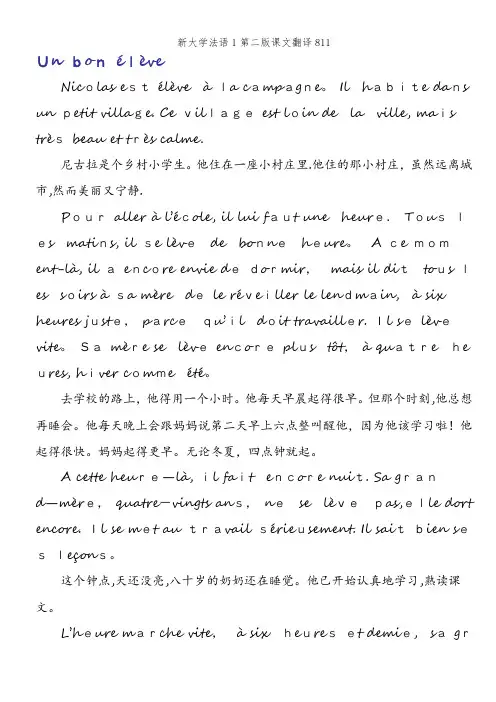 新大学法语1第二版课文翻译811
Un bon élève
Nicolas est élève à la campagne。 Il habite dans
un petit village.Ce village est loin de la ville, mais
très beau et très calme.
尼古拉是个乡村小学生。他住在一座小村庄里.他住的那小村庄，虽然远离城
市,然而美丽又宁静.
Pour aller à l'école, il lui faut une heure. Tous l
es matins, il se lève de bonne heure。 A ce mom
ent-là, il a encore envie de dormir， mais il dit tous l
es soirs à sa mère de le réveiller le lendmain, à six
heures juste, parce qu'il doit travailler. Il se lève
vite。 Sa mère se lève encore plus tôt， à quatre he
ures, hiver comme été。
去学校的路上，他得用一个小时。他每天早晨起得很早。但那个时刻,他总想
再睡会。他每天晚上会跟妈妈说第二天早上六点整叫醒他，因为他该学习啦！他
起得很快。妈妈起得更早。无论冬夏，四点钟就起。
A cette heure —là, il fait encore nuit. Sa gran
d—mère, quatre-vingts ans, ne se lève pas,elle dort
encore. Il se met au travail sérieusement. Il sait bien se
s leçons。
这个钟点,天还没亮,八十岁的奶奶还在睡觉。他已开始认真地学习,熟读课
文。
L'heure marche vite， à six heures et demie, sa gr